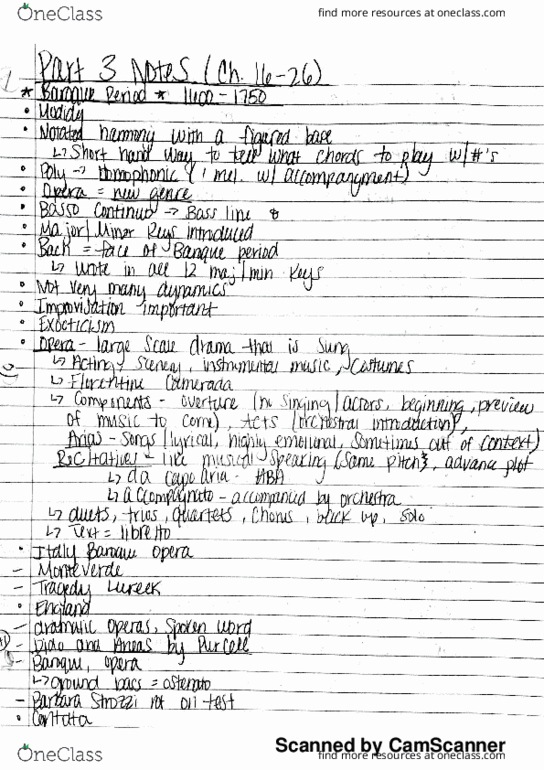 OneClass
find more resources at oneclass.com
Part 3 Notes (Ch. 16-26)
* Baroque Period * 1600-1750
• Modidy
• Notated harmony with a figured bass
↳ Short hand way to tell what chords to play w/ #'s
• Poly → Homophonic (1 mel. w/ accompanyment)
• Opera = new genre
• Basso Continuo → Bass line &
• Major/Minor Keys introduced
• Bach = face of Baroque period
↳ wrote in all 12 maj/min keys
• Not very many dynamics
• Improvisation important
• Exoticism
• Opera - large scale drama that is sung
↳ Acting, scenery, instrumental music, costumes
↳ Florentine Camerada
↳ Components - overture (no singing/actors, beginning, preview
of music to come), Acts (orchestral introduction),
Arias - songs (lyrical, highly emotional, sometimes out of context)
Recitatives - like musical speaking (same pitch), advance plot
↳ da capo aria - ABA
↳ accompagnato - accompanied by orchestra
↳ duets, trios, quartets, chorus, back up, solo
↳ Text = libretto
• Italy Baroque opera
- Monteverde
- Tragedy
• England
- dramatic operas, spoken word
- Dido and Aneas by Purcell
- Baroque, opera
↳ ground bass = ostenato
- Barbara Strozzi not on test
• Cantata
Scanned by CamScanner
OneClass
find more resources at oneclass.com